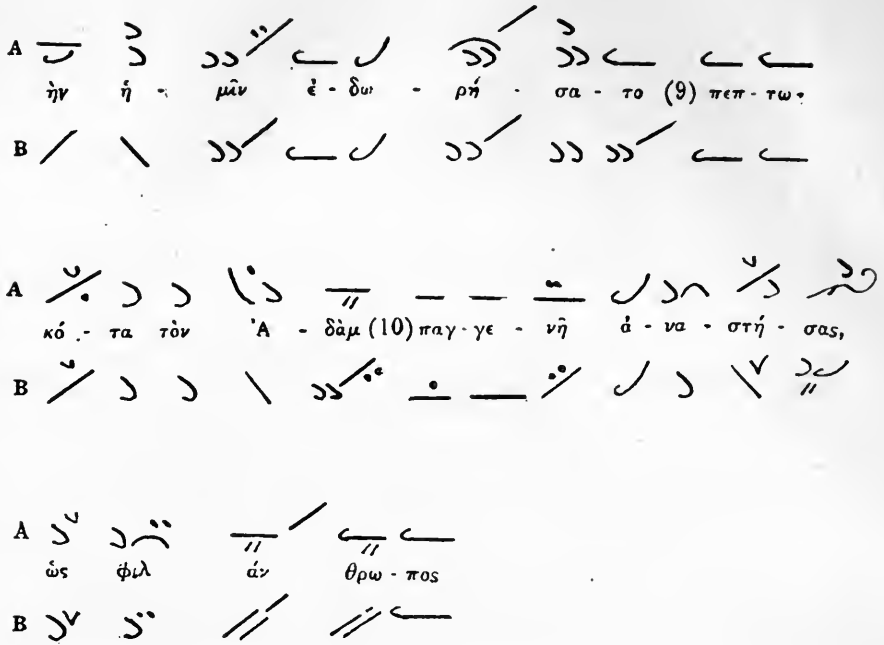 A
ἣν ἡ - μῖν ἐ - δω - ρή - σα - το (9) πεπ - τω -
B
A
κό - τα τὸν Ἀ - δὰμ (10) παγ - γε - νῆ ἀ - να - στή - σας,
B
A
ὡς φιλ άν θρω - πος
B